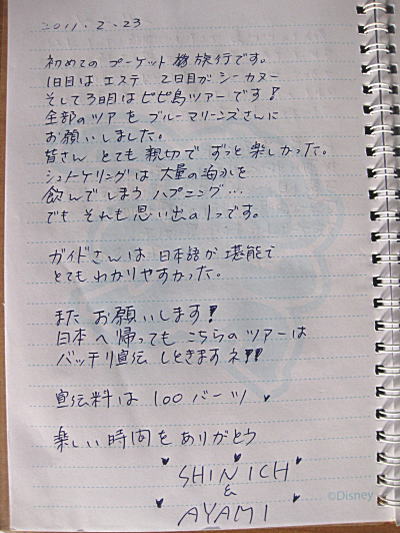 2011.2.23
初めての プーケット 旅旅行です。
1日目は エステ 2日目が シーカヌー
そして 3日目は ピピ島ツアーです!
全部のツアを ブルーマリーンズさんに
お願いしました。
皆さん とても 親切で ずっと 楽しかった。
シュノーケリングは 大量の海水を
飲んでしまう ハプニング…
でも それも思い出の1つです。
ガイドさんは 日本語が 堪能で
とてもわかりやすかった。
また お願いします!
日本へ帰っても こちらのツアーは
バッチリ宣伝しときますネ!!
宣伝料は 100バーツ ♥
楽しい時間をありがとう
SHINICH
&
AYAMI
©Disney